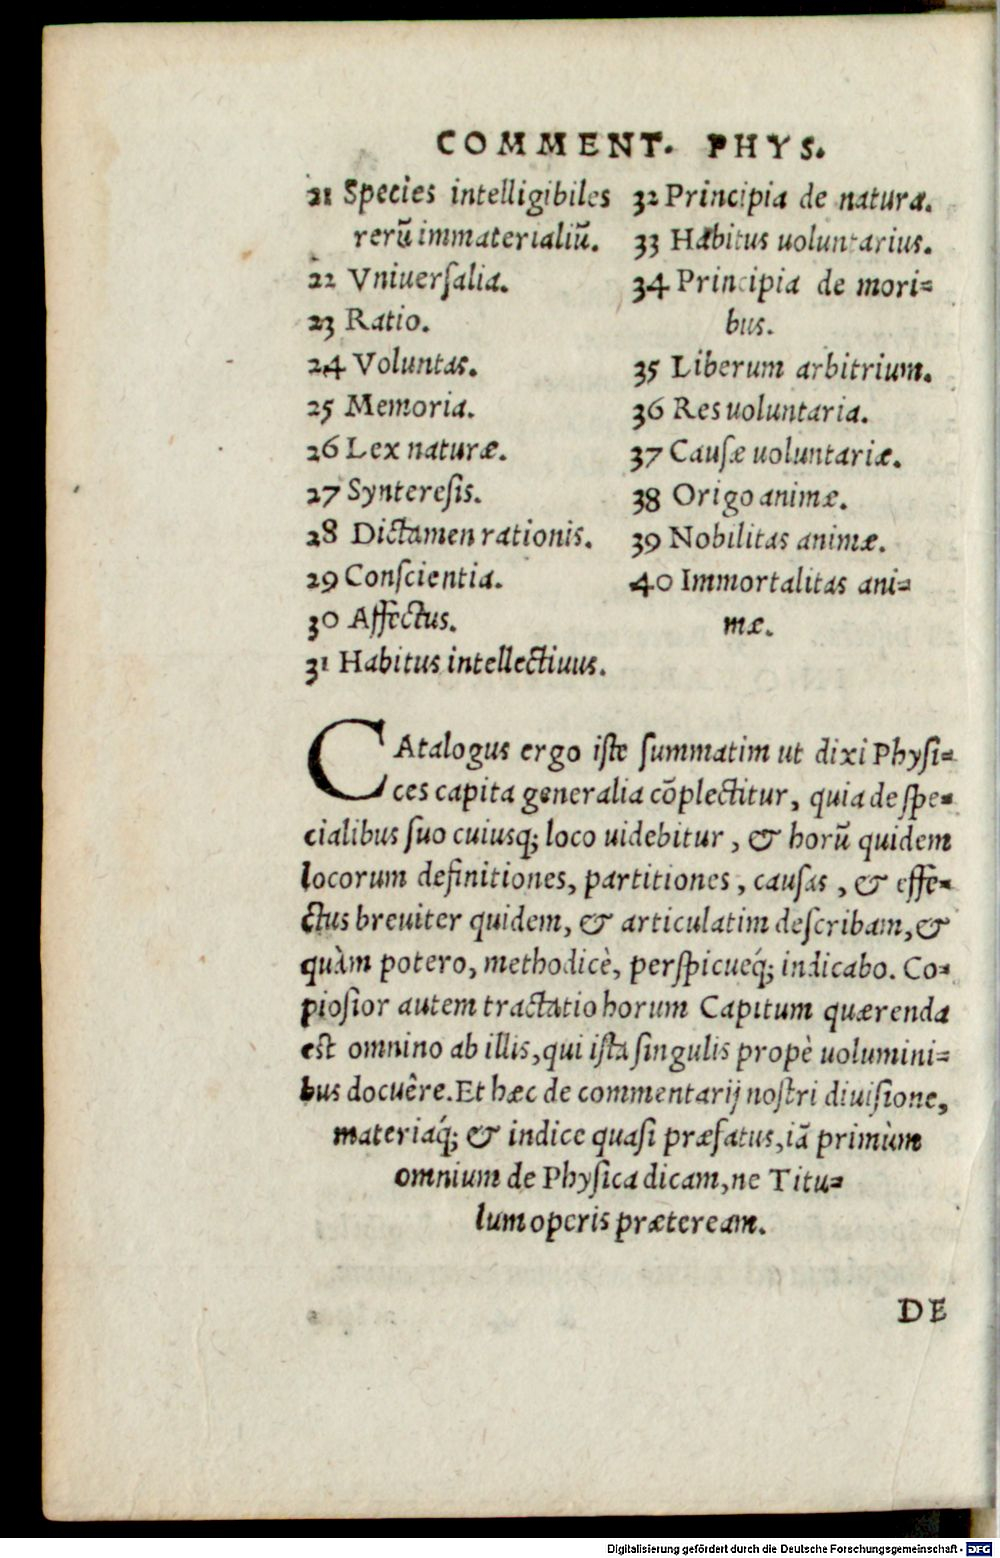 COMMENT. PHYS.
21 Species intelligibiles
rerũ immaterialiũ.
22 Vniuerſalia.
23 Ratio.
24 Voluntas.
25 Memoria.
26 Lex naturæ.
27 Syntereſis.
28 Dictamen rationis.
29 Conſcientia.
30 Affectus.
31 Habitus intellectiuus.
32 Principia de natura.
33 Habitus uoluntarius.
34 Principia de mori=
bus.
35 Liberum arbitrium.
36 Res uoluntaria.
37 Cauſæ uoluntariæ.
38 Origo animæ.
39 Nobilitas animæ.
40 Immortalitas ani=
mæ.
CAtalogus ergo iſte ſummatim ut dixi Phyſi=
ces capita generalia cõplectitur, quia de ſpe=
cialibus ſuo cuiusq; loco uidebitur, & horũ quidem
locorum definitiones, partitiones, cauſas, & effe=
ctus breuiter quidem, & articulatim deſcribam, &
quàm potero, methodicè, perſpicueq́; indicabo. Co=
pioſior autem tractatio horum Capitum quærenda
est omnino ab illis, qui iſta ſingulis propè uolumini=
bus docuêre. Et hæc de commentarij noſtri diuiſione,
materiaq́; & indice quaſi præfatus, iã primùm
omnium de Phyſica dicam, ne Titu=
lum operis præteream.
DE
Digitalisierung gefördert durch die Deutsche Forschungsgemeinschaft - DFG